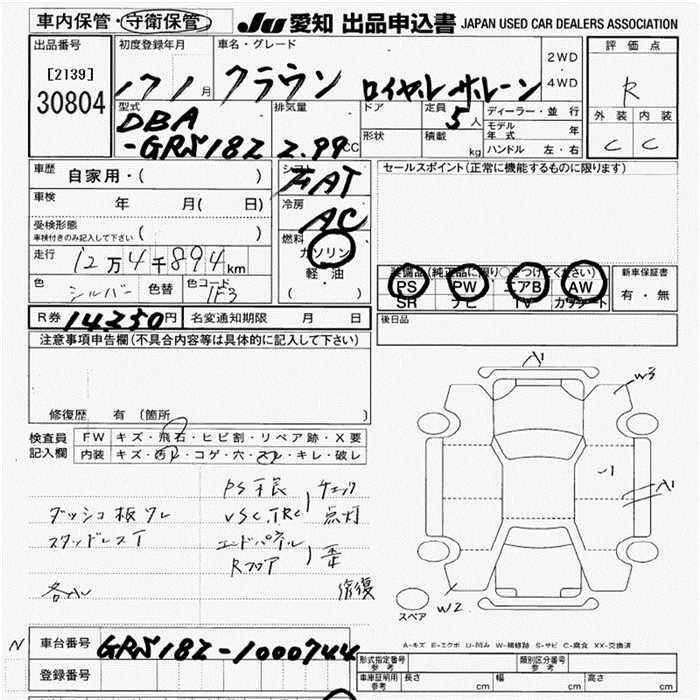 車内保管・守衛保管 JU 愛知 出品申込書 JAPAN USED CAR DEALERS ASSOCIATION
出品番号 初度登録年月 車名・グレード 2WD・4WD 評価点
[2139]
30804
17 1月 クラウン ロイヤルサルーン R
型式 排気量 ドア 定員 5人 ディーラー・並行 外装 内装
DBA
-GRS182 2.99CC 形状 積載 kg モデル年式 年 C C
ハンドル 左・右
車歴 自家用・( ) シフト FAT セールスポイント(正常に機能するものに限ります)
車検 年 月( 日) 冷房 AC
受検形態
車検付きのみ記入して下さい ( ) 燃料 ガソリン
走行 12万4千894km 軽・油
( ) 装備品(純正品に限り○をつけてください) 新車保証書
PS PW エアB AW 有・無
SR ナビ TV カワシート
色 シルバー 色替 色コード 1F3
R券 14,250円 名変通知期限 月 日 後日品
注意事項申告欄(不具合内容等は具体的に記入して下さい)
修復歴 有(箇所 )
検査員記入欄 FW キズ・飛石・ヒビ割・リペア跡・X要
内装 キズ・汚れ・コゲ・穴・スレ・キレ・破レ
チェック
ダッシュ板ワレ VSC,TRC 点灯
スタッドレスT エンドパネル
Rフロア
修復
A1
W3
A1
W2
スペア
A-キズ E-エクボ U-凹み W-補修跡 S-サビ C-腐食 XX-交換済
N 車台番号 GRS182-1000744
登録番号
形式指定番号 参考 類別区分番号 参考
車庫証明用 参考 長さ cm 幅 cm 高さ cm